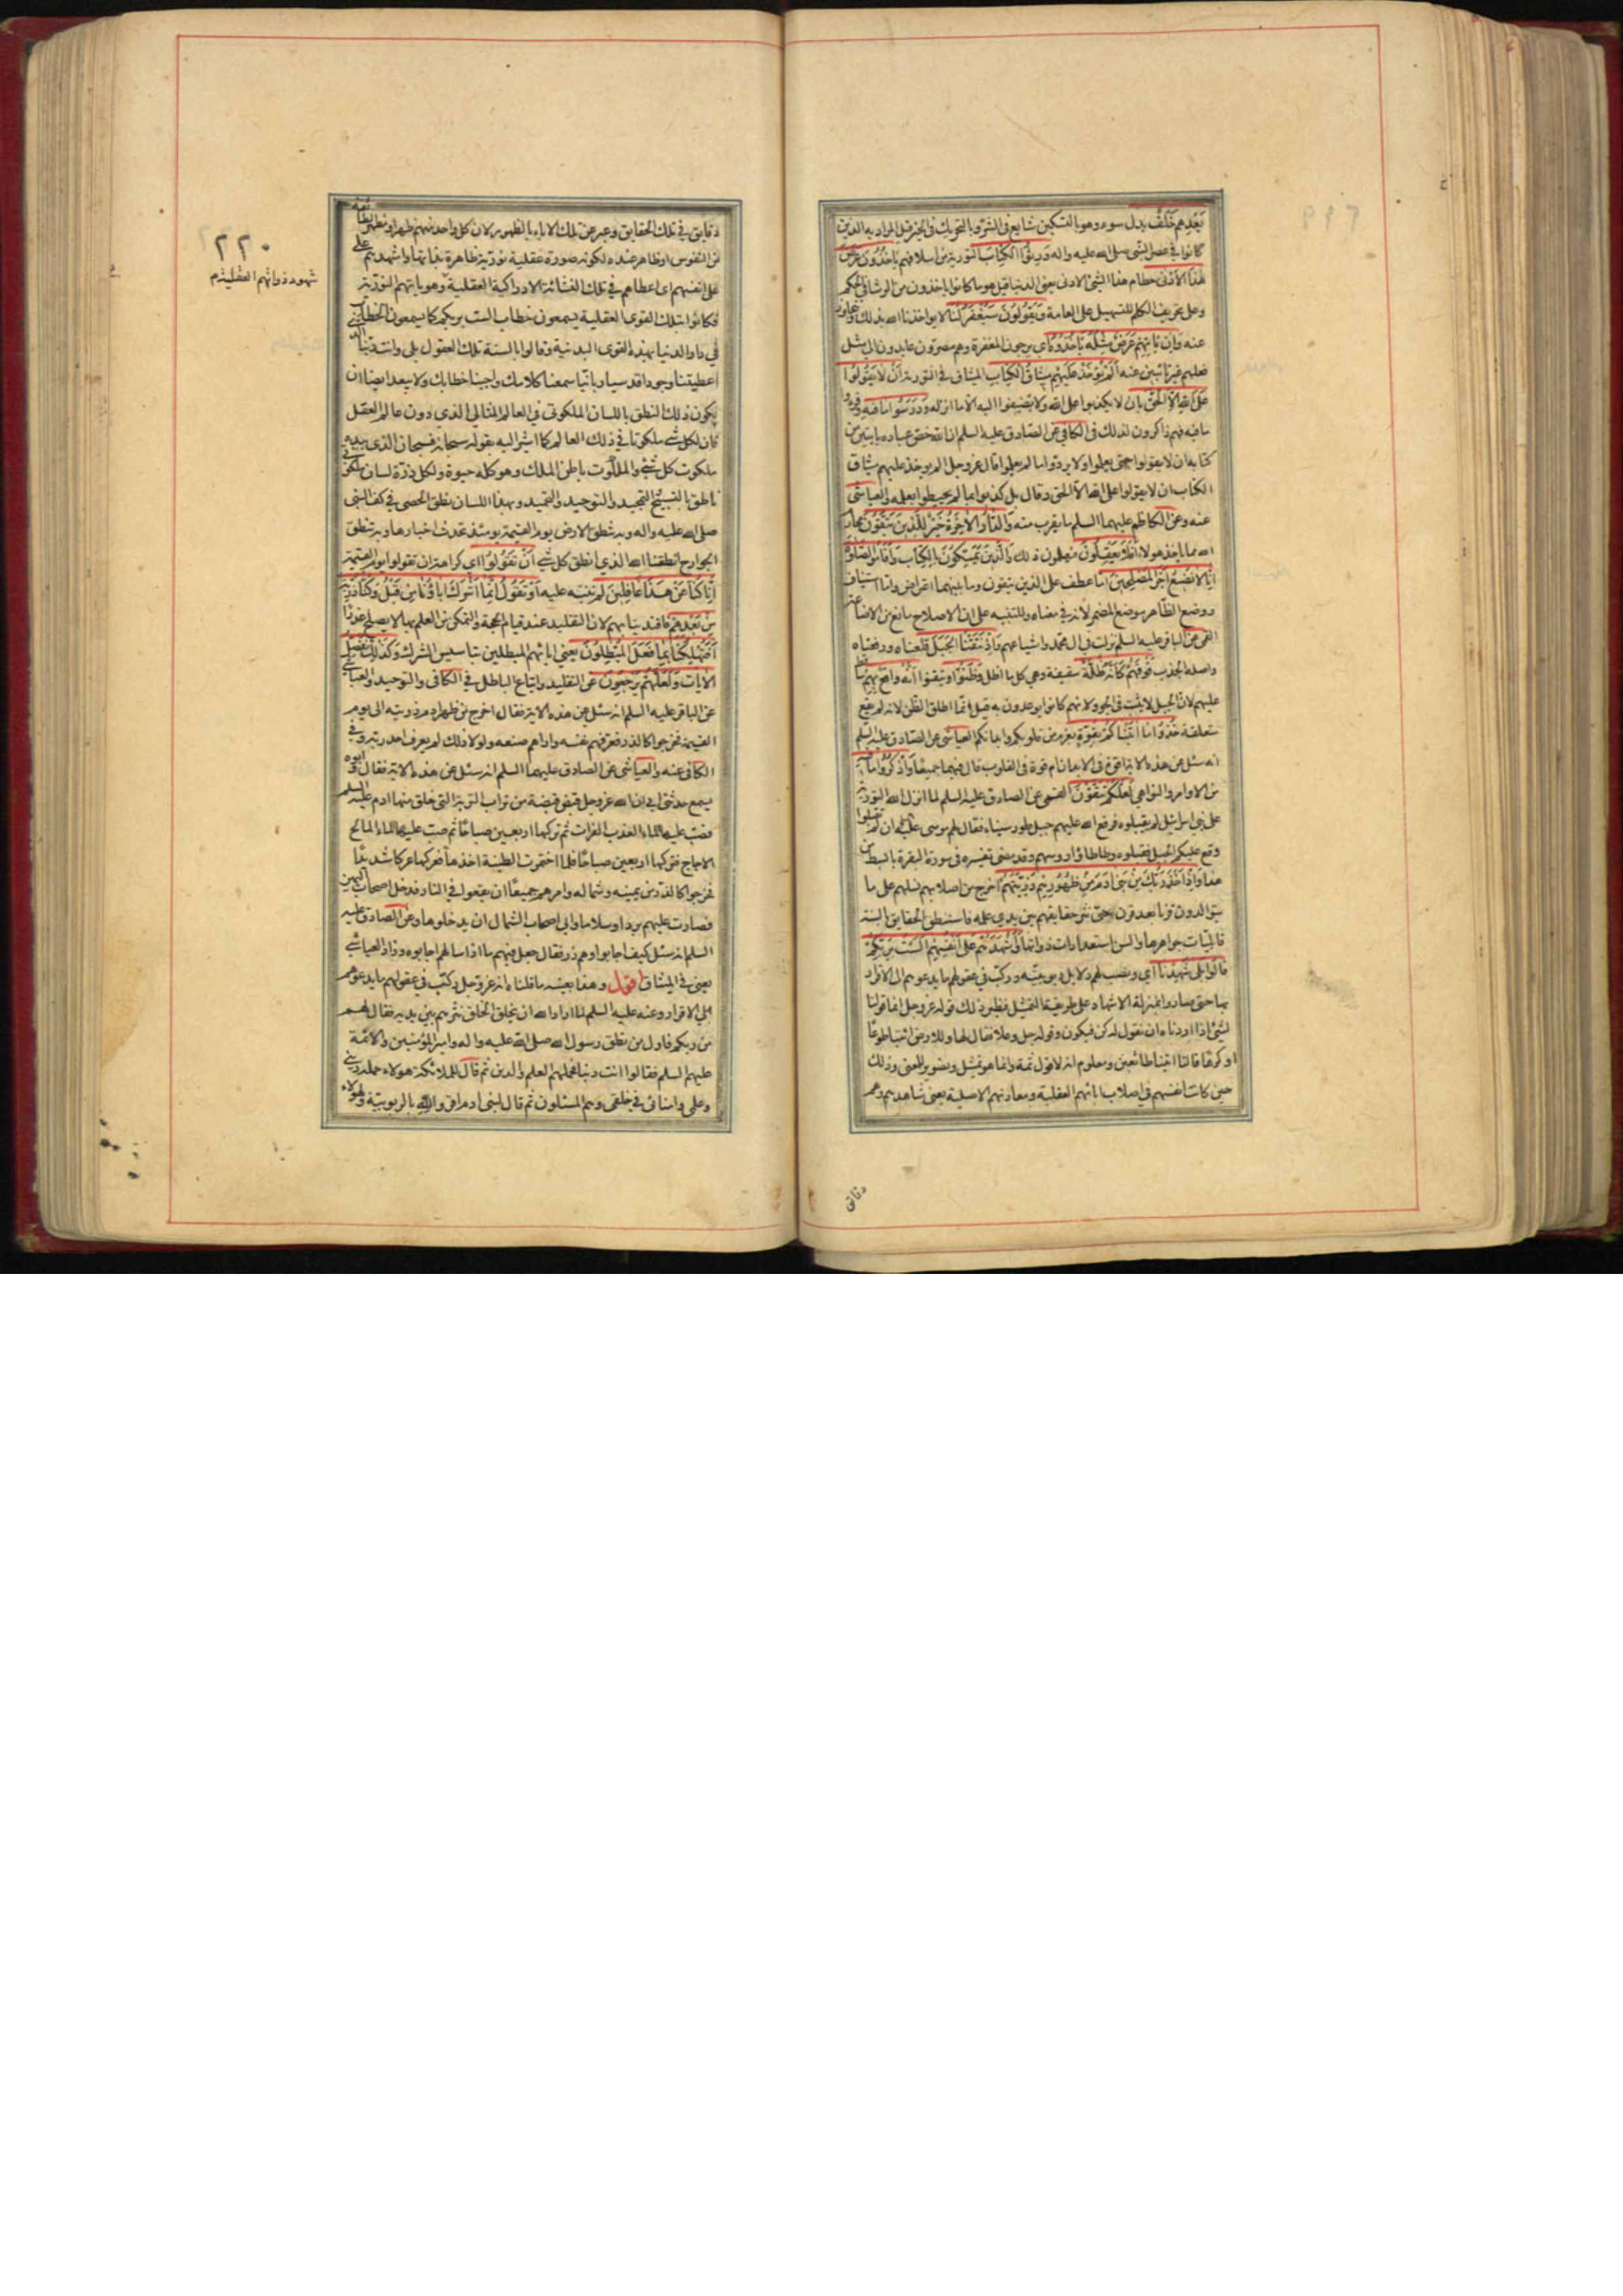 بَعْدِهِمْ خَلْفٌ بدل سوء وهو بالتسكين شايع في الشر وبالتحريك في الخير قيل المراد به الذين
كانوا في عصر النبي صلى الله عليه واله وَرِثُوا الْكِتَابَ التورية من اسلافهم يَأْخُذُونَ عَرَضَ
هٰذَا الْأَدْنٰى حطام هذا الشئ الادنى يعني الدنيا قيل هو ما كانوا ياخذون من الرشا في الحكم
وعلى تحريف الكلم للتسهيل على العامة وَيَقُولُونَ سَيُغْفَرُ لَنَا لا يواخذنا الله بذلك ويتجاوز
عنه وَإِنْ يَأْتِهِمْ عَرَضٌ مِثْلُهُ يَأْخُذُوهُ اي يرجون المغفرة وهم مصرون عايدون الى مثل
فعلهم غير تائبين عنه أَلَمْ يُؤْخَذْ عَلَيْهِمْ مِيثَاقُ الْكِتَابِ الميثاق في التورية أَنْ لَا يَقُولُوا
عَلَى اللّٰهِ إِلَّا الْحَقَّ بان لا يكذبوا على الله ولا يضيفوا اليه الا ما انزله وَدَرَسُوا مَا فِيهِ وقرءوا
ما فيه فهم ذاكرون لذلك في الكافي عن الصادق عليه السلم ان الله خص عباده بايتين من
كتابه ان لا يقولوا حتى يعلموا ولا يردوا ما لم يعلموا قال عز وجل الم يوخذ عليهم ميثاق
الكتاب ان لا يقولوا على الله الا الحق وقال بل كذبوا بما لم يحيطوا بعلمه والعياشي
عنه وعن الكاظم عليهما السلم ما يقرب منه وَالدَّارُ الْآخِرَةُ خَيْرٌ لِلَّذِينَ يَتَّقُونَ محارم
الله مما ياخذ هولاء أَفَلَا يَعْقِلُونَ فيعلمون ذلك وَالَّذِينَ يُمَسِّكُونَ بِالْكِتَابِ وَأَقَامُوا الصَّلٰوةَ
إِنَّا لَا نُضِيعُ أَجْرَ الْمُصْلِحِينَ اما عطف على الذين يتقون وما بينهما اعتراض واما استيناف
ووضع الظاهر موضع المضمر لانه في معناه وللتنبيه على ان الاصلاح مانع من الاضاعة
القمي عن الباقر عليه السلم نزلت في ال محمد واشياعهم وَإِذْ نَتَقْنَا الْجَبَلَ قلعناه ورفعناه
واصله الجذب فَوْقَهُمْ كَأَنَّهُ ظُلَّةٌ سقيفة وهي كل ما اظل وَظَنُّوا وتيقنوا أَنَّهُ وَاقِعٌ بِهِمْ ساقط
عليهم لان الجبل لا يثبت في الجو ولانهم كانوا يوعدون به قيل وانما اطلق الظن لانه لم يقع
متعلقه خُذُوا مَا آتَيْنَاكُمْ بِقُوَّةٍ بعزم من قلوبكم وابدانكم العياشي عن الصادق عليه السلم
انه سئل عن هذه الاية اقوة في الابدان ام قوة في القلوب قال فيهما جميعا وَاذْكُرُوا مَا فِيهِ
من الاوامر والنواهي لَعَلَّكُمْ تَتَّقُونَ القمي عن الصادق عليه السلم لما انزل الله التورية
على بني اسرائيل لم يقبلوه فرفع الله عليهم جبل طور سيناء فقال لهم موسى عليه السلم ان لم تقبلوا
وقع عليكم الجبل فقبلوه وطاطاؤا رؤسهم وقد مضى تفسيره في سورة البقرة بابسط من
هذا وَإِذْ أَخَذَ رَبُّكَ مِنْ بَنِي آدَمَ مِنْ ظُهُورِهِمْ ذُرِّيَّتَهُمْ اخرج من اصلابهم نسلهم على ما
يتوالدون قرنا بعد قرن حتى نثر حقايقهم بين يدي علمه فاستنطق الحقايق بالسنة
قابليات جواهرها والسن استعدادات ذواتها وَأَشْهَدَهُمْ عَلٰى أَنْفُسِهِمْ أَلَسْتُ بِرَبِّكُمْ
قَالُوا بَلٰى شَهِدْنَا اي ونصب لهم دلايل ربوبيته وركب في عقولهم ما يدعوهم الى الاقرار
بها حتى صاروا بمنزلة الاشهاد على طريقة التمثيل نظير ذلك قوله عز وجل انما قولنا
لشئ اذا اردناه ان نقول له كن فيكون وقوله جل وعلا فقال لها وللارض ائتيا طوعا
او كرها قالتا اتينا طائعين ومعلوم انه لا قول ثمة وانما هو تمثيل وتصوير للمعنى وذلك
حين كانت انفسهم في اصلاب ابائهم العقلية ومعادنهم الاصلية يعني شاهدهم وهم
دقائق
دقايق في تلك الحقايق وعبر عن تلك الاباء بالظهور لان كل واحد منهم ظهر او مظهر لطائفة
من النفوس او ظاهر عنده لكونه صورة عقلية نورية ظاهرة بذاتها واشهدهم على
انفسهم اي اعطاهم في تلك النشاة الادراكية العقلية وهوياتهم النورية
فكانوا بتلك القوى العقلية يسمعون خطاب الست بربكم كما يسمعون الخطاب
في دار الدنيا بهذه القوى البدنية وقالوا بالسنة تلك العقول بلى وانت ربنا الذي
اعطيتنا وجودا قدسيا ربانيا سمعنا كلامك واجبنا خطابك ولا يبعد ايضا ان
يكون ذلك النطق باللسان الملكوتي في العالم المثالي الذي دون عالم العقل
فان لكل شئ ملكوتا في ذلك العالم كما اشير اليه بقوله سبحانه فسبحان الذي بيده
ملكوت كل شئ والملكوت باطن الملك وهو كله حيوة ولكل ذرة لسان ملكوتي
ناطق بالتسبيح والتمجيد والتوحيد والتحميد وبهذا اللسان نطق الحصى في كف النبي
صلى الله عليه واله وبه تنطق الارض يوم القيمة يومئذ تحدث اخبارها وبه تنطق
الجوارح انطقنا الله الذي انطق كل شئ أَنْ تَقُولُوا اي كراهة ان تقولوا يوم القيمة
إِنَّا كُنَّا عَنْ هٰذَا غَافِلِينَ لم ننبه عليه أَوْ تَقُولُوا إِنَّمَا أَشْرَكَ آبَاؤُنَا مِنْ قَبْلُ وَكُنَّا ذُرِّيَّةً
مِنْ بَعْدِهِمْ فاقتدينا بهم لان التقليد عند قيام الحجة والتمكن من العلم بها لا يصلح عذرا
أَفَتُهْلِكُنَا بِمَا فَعَلَ الْمُبْطِلُونَ يعني ابائهم المبطلين بتاسيس الشرك وَكَذٰلِكَ نُفَصِّلُ
الْآيَاتِ وَلَعَلَّهُمْ يَرْجِعُونَ عن التقليد واتباع الباطل في الكافي والتوحيد والعياشي
عن الباقر عليه السلم انه سئل عن هذه الاية فقال اخرج من ظهر ادم ذريته الى يوم
القيمة فخرجوا كالذر فعرفهم نفسه واراهم صنعه ولولا ذلك لم يعرف احد ربه وفي
الكافي عنه والعياشي عن الصادق عليهما السلم انه سئل عن هذه الاية فقال وابوه
يسمع حدثني ابي ان الله عز وجل قبض قبضة من تراب التربة التي خلق منها ادم عليه السلم
فصب عليها الماء العذب الفرات ثم تركها اربعين صباحا ثم صب عليها الماء المالح
الاجاج فتركها اربعين صباحا فلما اختمرت الطينة اخذها فعركها عركا شديدا
فخرجوا كالذر من يمينه وشماله وامرهم جميعا ان يقعوا في النار فدخل اصحاب اليمين
فصارت عليهم بردا وسلاما وابى اصحاب الشمال ان يدخلوها وعن الصادق عليه
السلم انه سئل كيف اجابوا وهم ذر فقال جعل فيهم ما اذا سالهم اجابوه وزاد العياشي
يعني في الميثاق اقول وهذا بعينه ما قلناه انه عز وجل ركب في عقولهم ما يدعوهم
الى الاقرار وعنه عليه السلم لما اراد الله ان يخلق الخلق نثرهم بين يديه فقال لهم
من ربكم فاول من نطق رسول الله صلى الله عليه واله وامير المؤمنين والائمة
عليهم السلم فقالوا انت ربنا فحملهم العلم والدين ثم قال للملائكة هولاء حملة ديني
وعلمي وامنائي في خلقي وهم المسئولون ثم قال لبني ادم اقروا لله بالربوبية ولهؤلاء
٢٢٠
شهود ذواتهم العقلية م